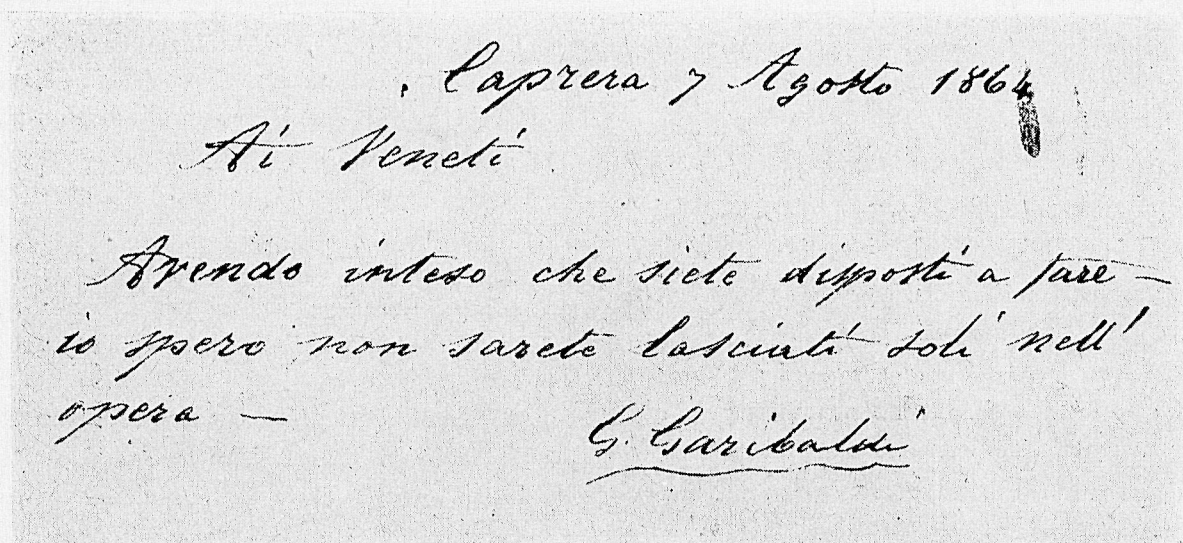 Caprera 7 Agosto 1864
Ai Veneti
Avendo inteso che siete disposti a fare —
io spero non sarete lasciati soli nell'
opera —
G. Garibaldi